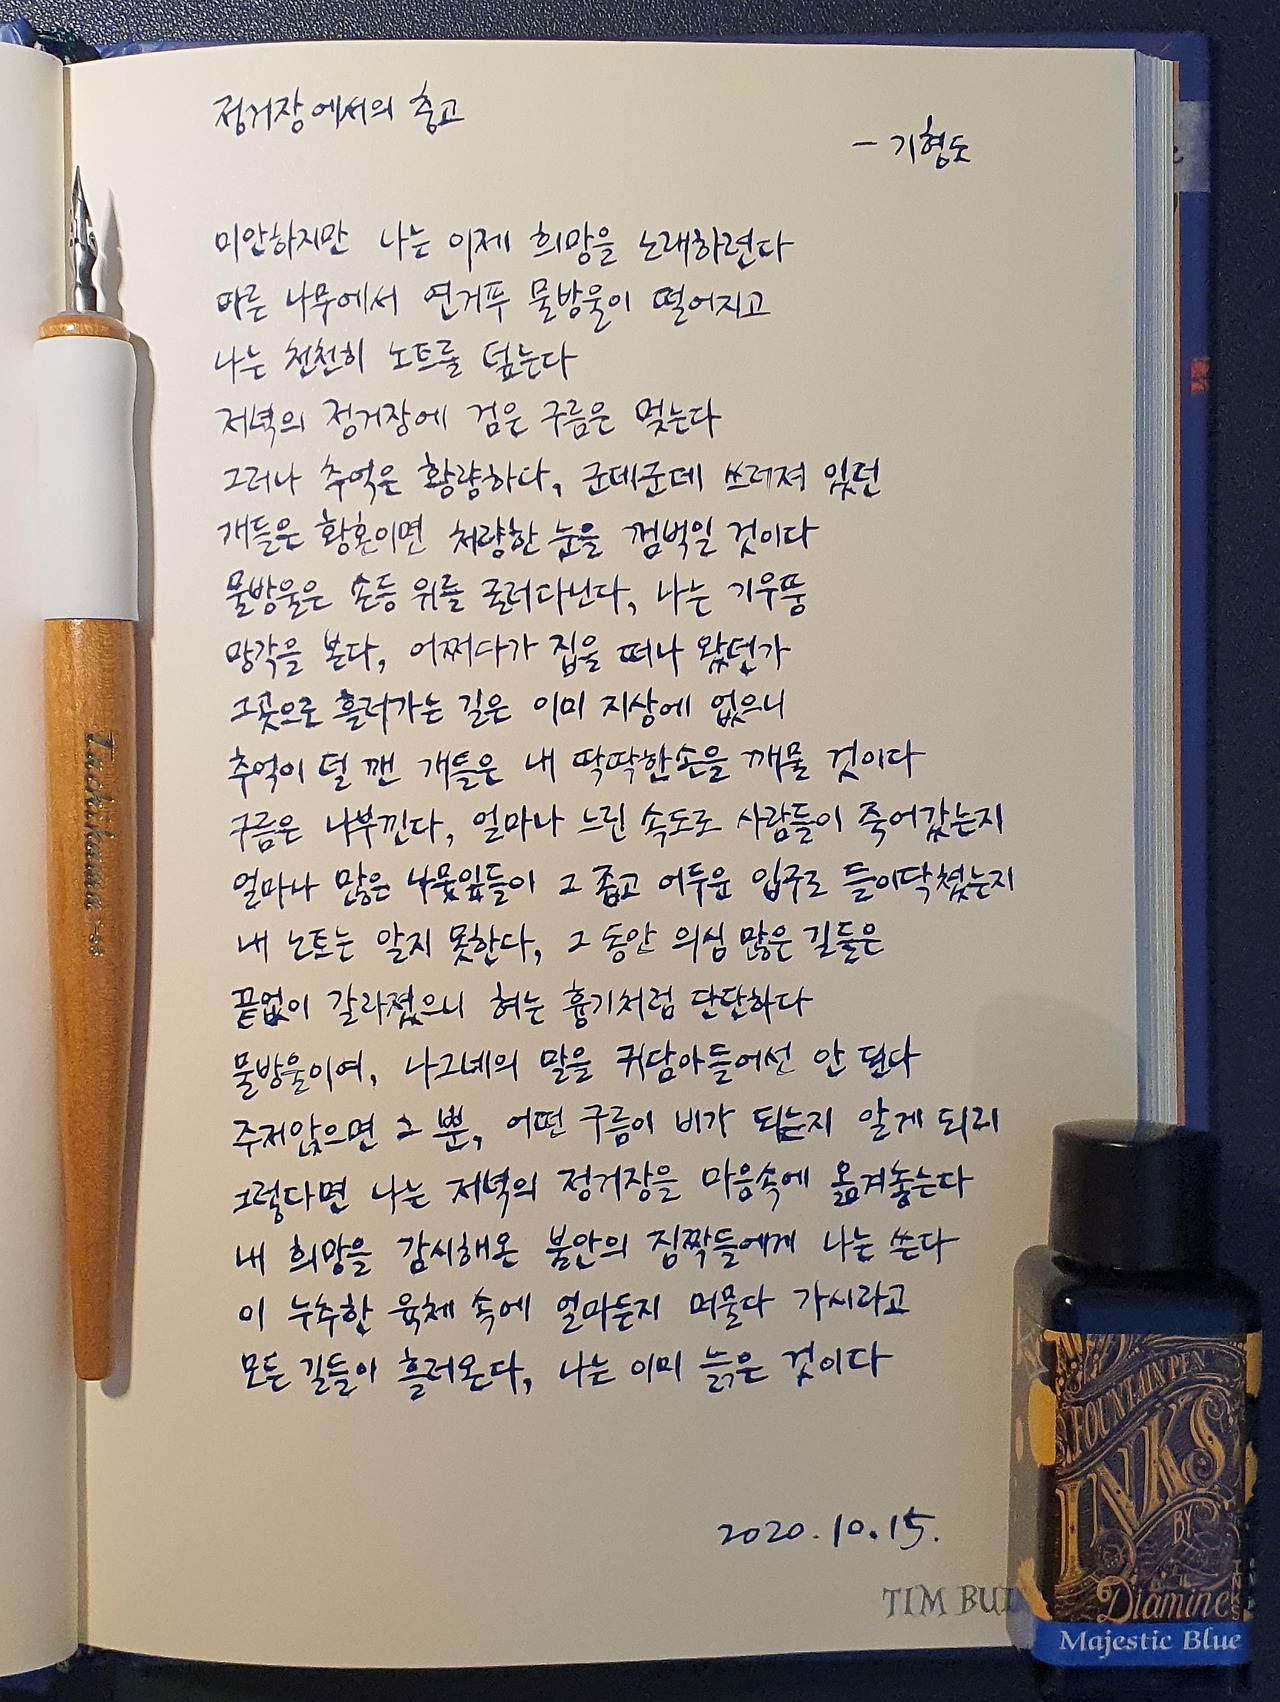 정거장에서의 충고
- 기형도
미안하지만 나는 이제 희망을 노래하련다
마른 나무에서 연거푸 물방울이 떨어지고
나는 천천히 노트를 덮는다
저녁의 정거장에 검은 구름은 멎는다
그러나 추억은 황량하다, 군데군데 쓰러져 있던
개들은 황혼이면 처량한 눈을 껌벅일 것이다
물방울은 손등 위를 굴러다닌다, 나는 기우뚱
망각을 본다, 어쩌다가 집을 떠나 왔던가
그곳으로 흘러가는 길은 이미 지상에 없으니
추억이 덜 깬 개들은 내 딱딱한 손을 깨물 것이다
구름은 나부낀다, 얼마나 느린 속도로 사람들이 죽어갔는지
얼마나 많은 나뭇잎들이 그 좁고 어두운 입구로 들이닥쳤는지
내 노트는 알지 못한다, 그 동안 의심 많은 길들은
끝없이 갈라졌으니 혀는 흉기처럼 단단하다
물방울이여, 나그네의 말을 귀담아들어선 안 된다
주저앉으면 그 뿐, 어떤 구름이 비가 되는지 알게 되리
그렇다면 나는 저녁의 정거장을 마음속에 옮겨놓는다
내 희망을 감시해온 불안의 짐짝들에게 나는 쓴다
이 누추한 육체 속에 얼마든지 머물다 가시라고
모든 길들이 흘러온다, 나는 이미 늙은 것이다
2020.10.15.
TIM BU
Tachikawa
FOUNTAIN PEN
INKS
BY
Diamine
Majestic Blue